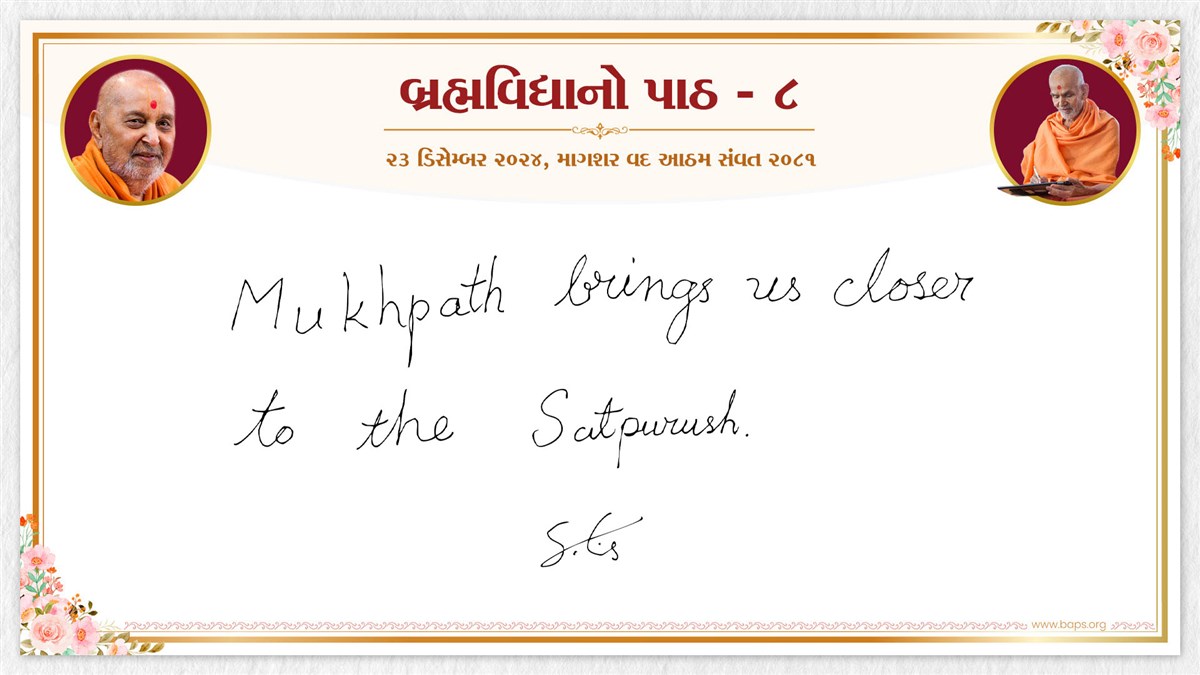 બ્રહ્મવિદ્યાનો પાઠ - ૮
૨૩ ડિસેમ્બર ૨૦૨૪, માગશર વદ આઠમ સંવત ૨૦૮૧
Mukhpath brings us closer
to the Satpurush.
www.baps.org